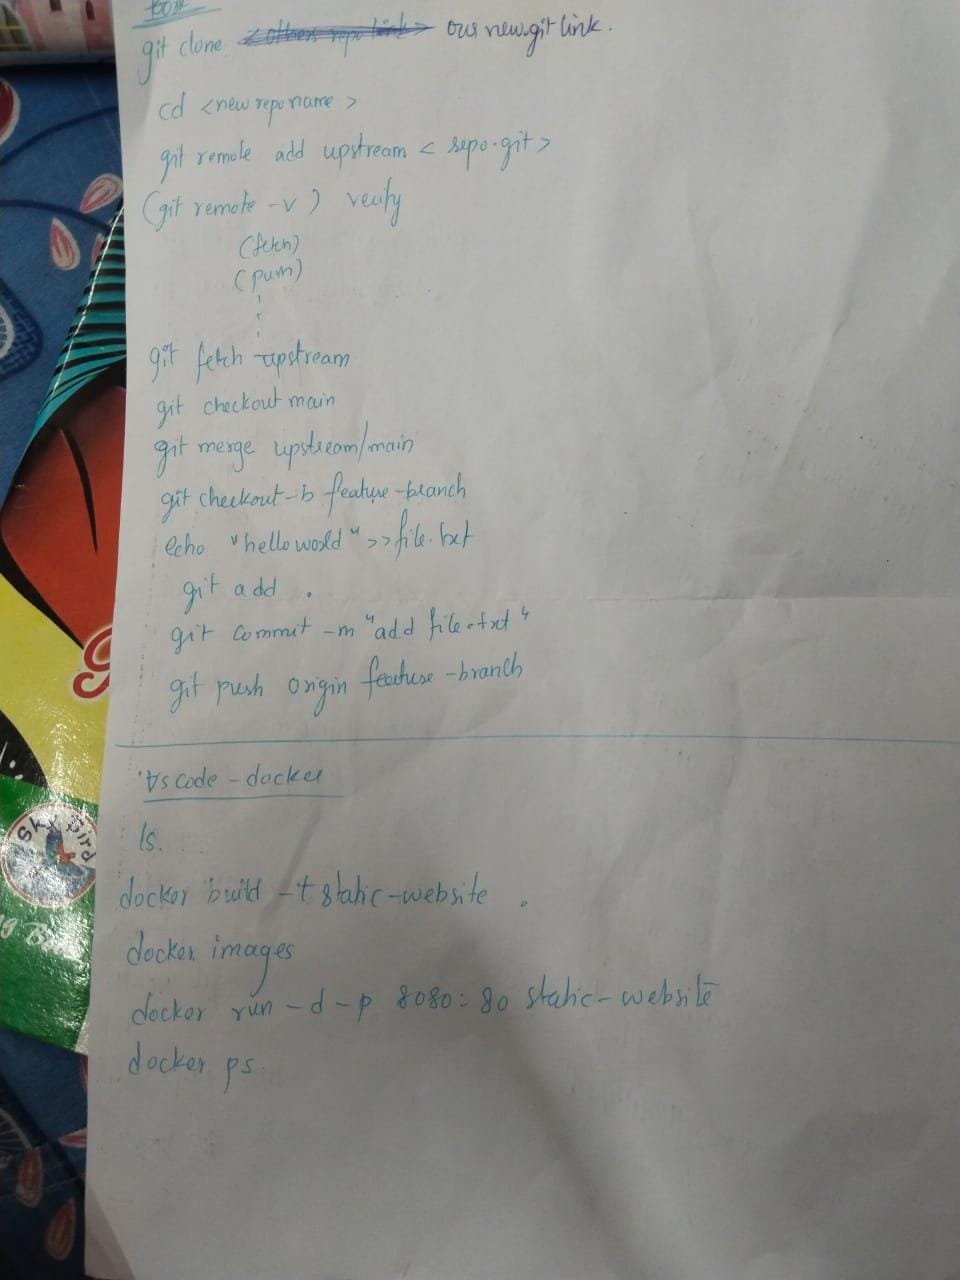 git clone <others repo link> our new.git link.
cd <new repo name>
git remote add upstream < repo.git>
(git remote -v) verify
(fetch)
(push)
git fetch upstream
git checkout main
git merge upstream/main
git checkout -b feature-branch
echo "hello world" >> file.txt
git add .
git commit -m "add file.txt"
git push origin feature-branch
Vs code - docker
ls.
docker build -t static-website .
docker images
docker run -d -p 8080:80 static-website
docker ps.
Sky Bird